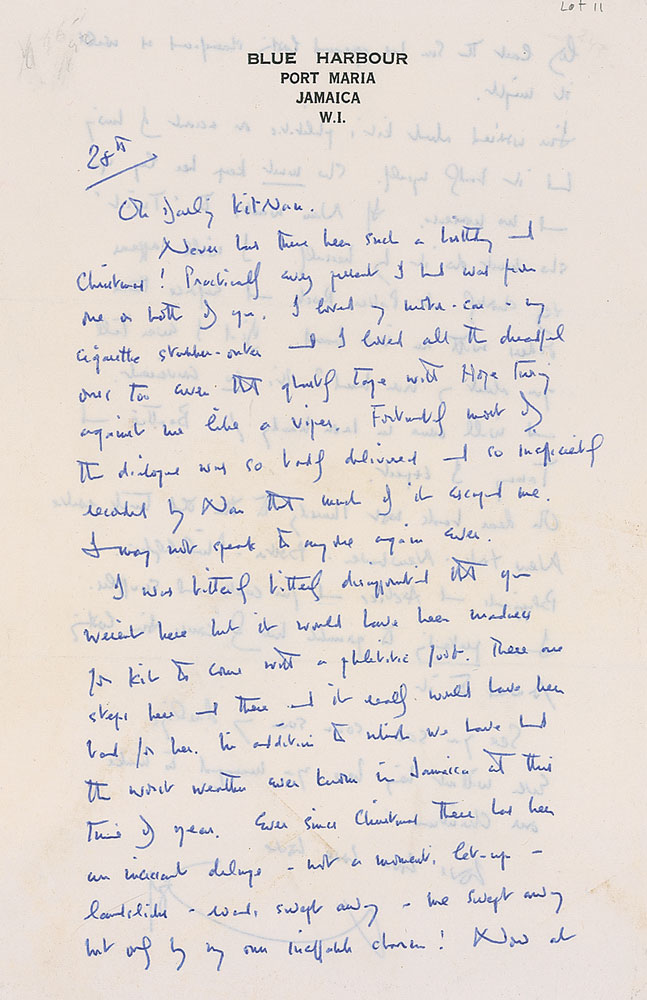 Lot 11
BLUE HARBOUR
PORT MARIA
JAMAICA
W.I.
28th
Oh Darling Kit Nan.
Never has there been such a birthday and
Christmas! Practically every present I had was from
one or both of you. I loved my motor-car - my
cigarette stubber-outer and I loved all the dreadful
ones too even that ghastly tape with Hope turning
against me like a viper. Fortunately most of
the dialogue was so badly delivered and so inefficiently
recorded by Nan that much of it escaped me.
I may not speak to anyone again ever.
I was bitterly bitterly disappointed that you
weren't here but it would have been madness
for Kit to come with a phlebitic foot. There are
steps here and there and it really would have been
bad for her. In addition to which we have had
the worst weather ever known in Jamaica at this
time of year. Ever since Christmas there has been
an incessant deluge - not a moment's let-up -
landslides - roads swept away - me swept away
but only by my own ineffable charm! Now at